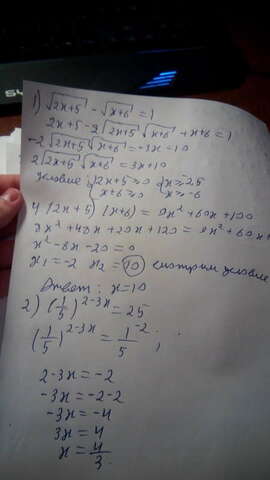 1) √2x+5 - √x+6 = 1
2x+5-2√2x+5 √x+6 +x+6=1
-2√2x+5 √x+6 = -3x-10
2√2x+5 √x+6 = 3x+10
условие: {2x+5≥0 {x≥-2.5
x+6≥0 x≥-6
4(2x+5)(x+6) = 9x²+60x+100
8x²+48x+20x+120=9x²+60x+
x²-8x-20=0
x₁=-2 x₂=10 смотрим условие
Ответ: x=10
2) (1/5)^2-3x = 25
(1/5)^2-3x = 1/5^-2 ;
2-3x=-2
-3x=-2-2
-3x=-4
3x=4
x=4/3